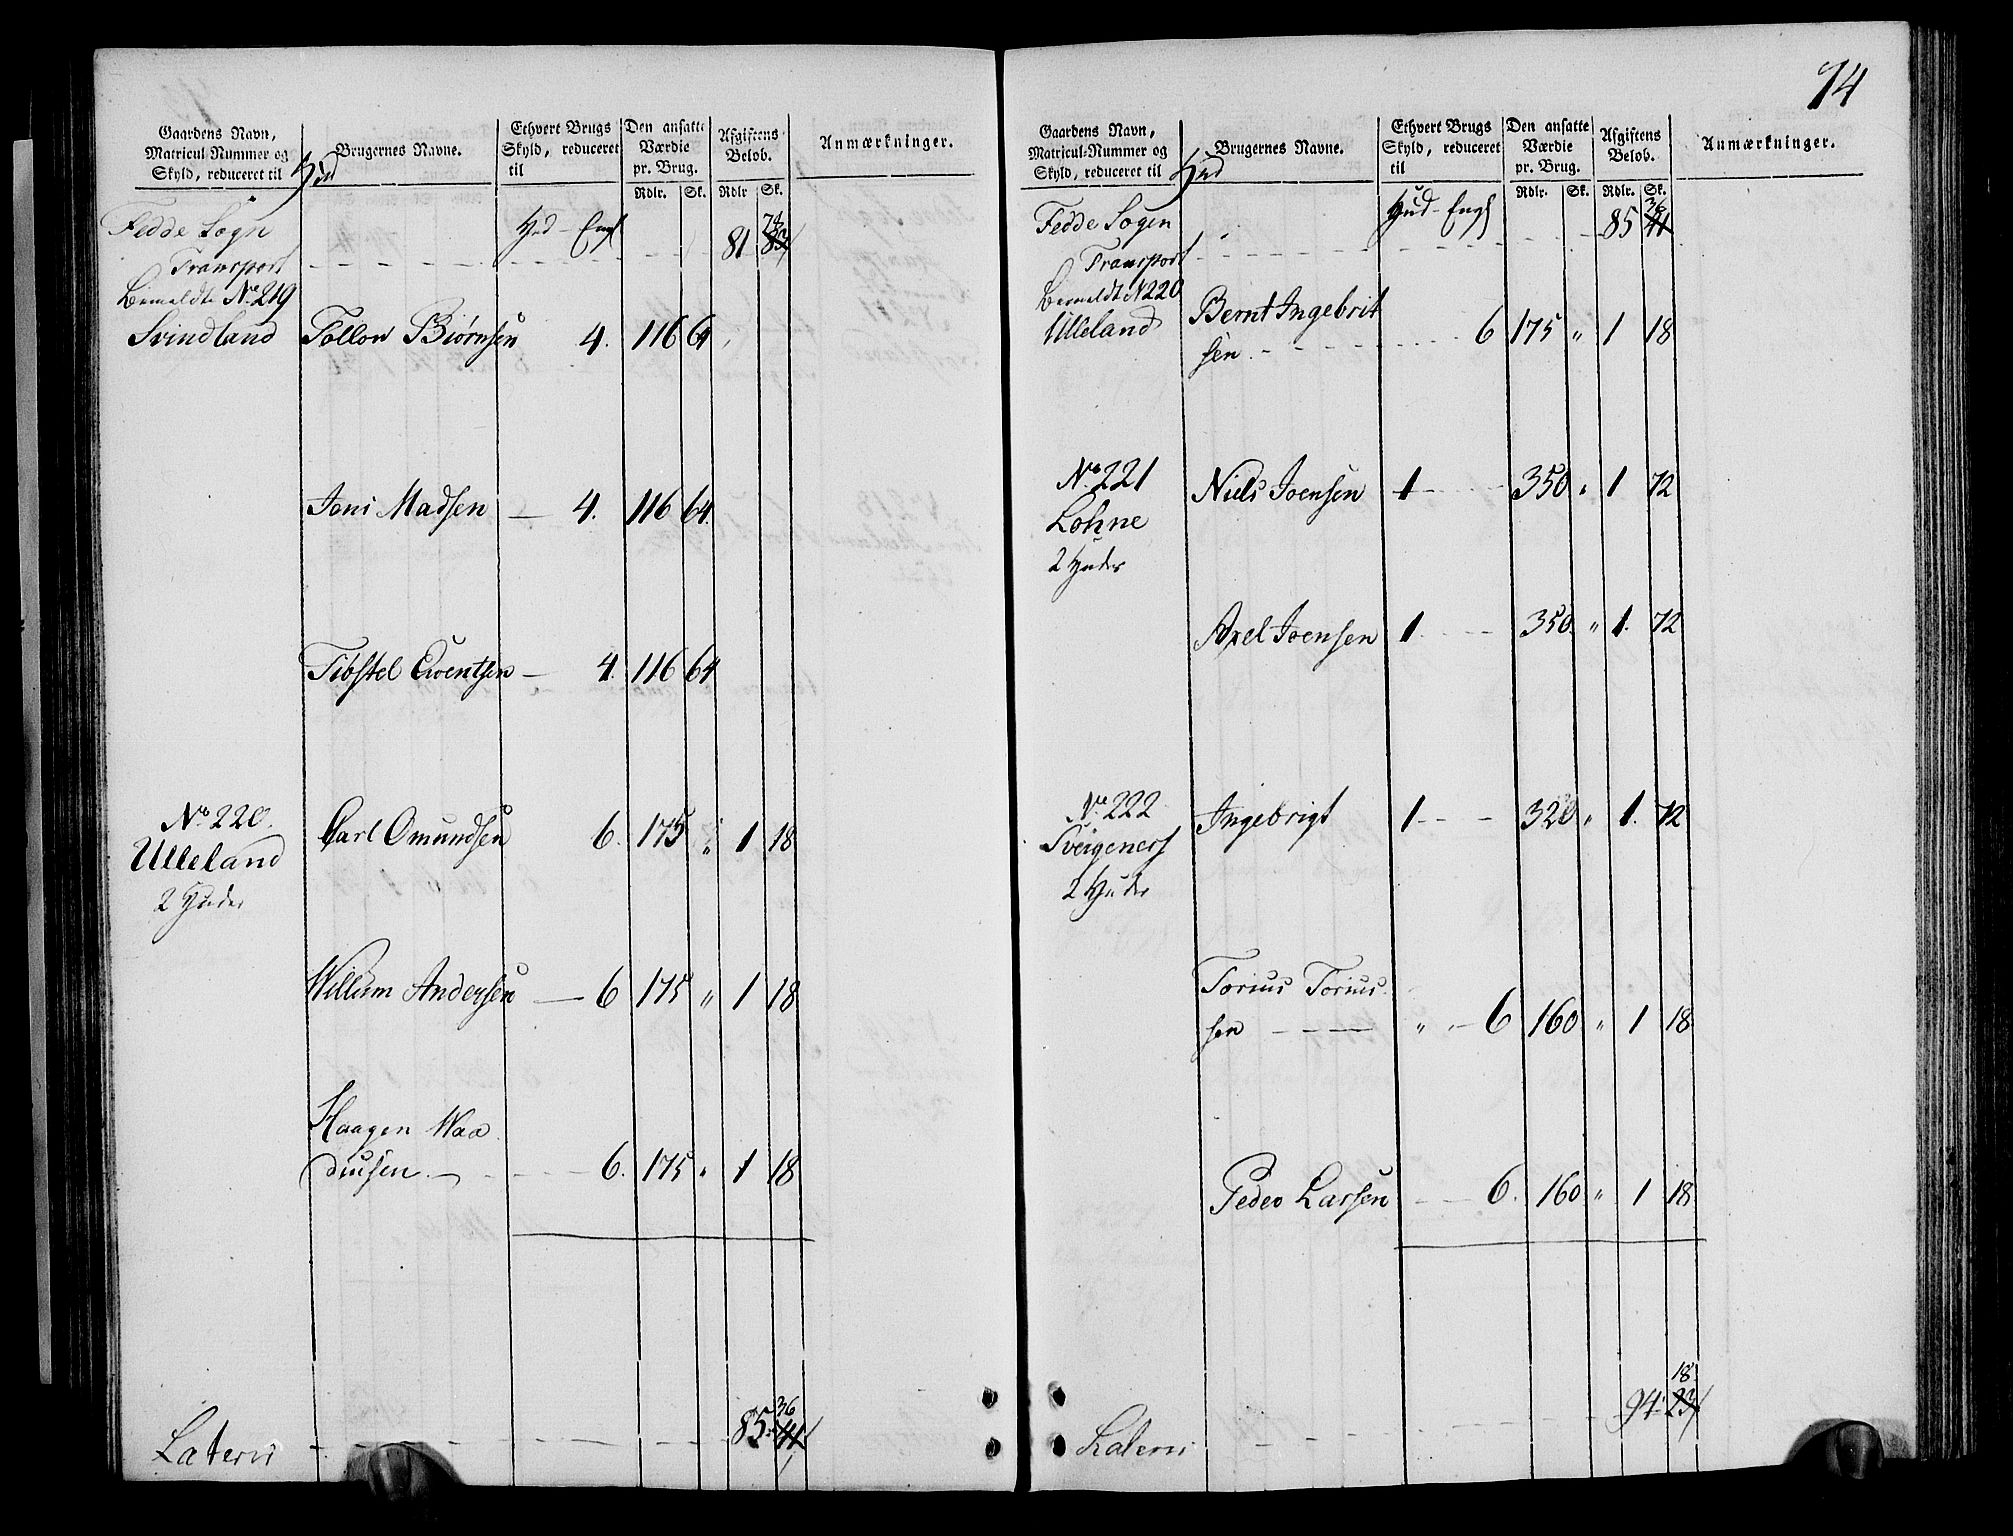 Gaardens Navn, Matricul-Nummer og Skyld, reduceret til Hud
Brugernes Navne.
Ethvert Brugs Skyld, reduceret til
Den ansatte Værdie pr. Brug.
Afgiftens Beløb.
Anmærkninger.
Rdlr. Sk. Rdlr Sk.
Fedde Sogn Hud - Engl
Transport 81 78 83
bemeldte No 219
Svindland Tollow Biørnsen 4. 116 64
Jens Madsen 4. 116 64.
Tibstel Ewentsen 4. 116 64
No 220. Carl Omundsen 6. 175 " 1 18
Ulleland
2 Huder
Willum Andersen 6 175 " 1 18
Haagen Waa
diusen. 6. 175 " 1 18
36
Lateris 85 41
74
Gaardens Navn, Matricul-Nummer og Skyld, reduceret til Hud
Brugernes Navne.
Ethvert Brugs Skyld, reduceret til
Den ansatte Værdie pr. Brug.
Afgiftens Beløb.
Anmærkninger.
Rdlr. Sk. Rdlr. Sk.
Fedde Sogen Hud - Engl 85 36 41
Transport
bemeldte N 220
Ulleland Bernt Ingebrit
sen 6 175 " 1 18
No 221 Niels Joensen 1 350 " 1 72
Lohne
2 Huder
Axel Joensen 1 350. " 1. 72
No 222 Ingebrigt 1 320 " 1. 72
Sveigenes
2 Huder
Torius Torius
sen " 6 160 " 1 18
Peder Larsen 6. 160 " 1 18
18
Lateris 94 23